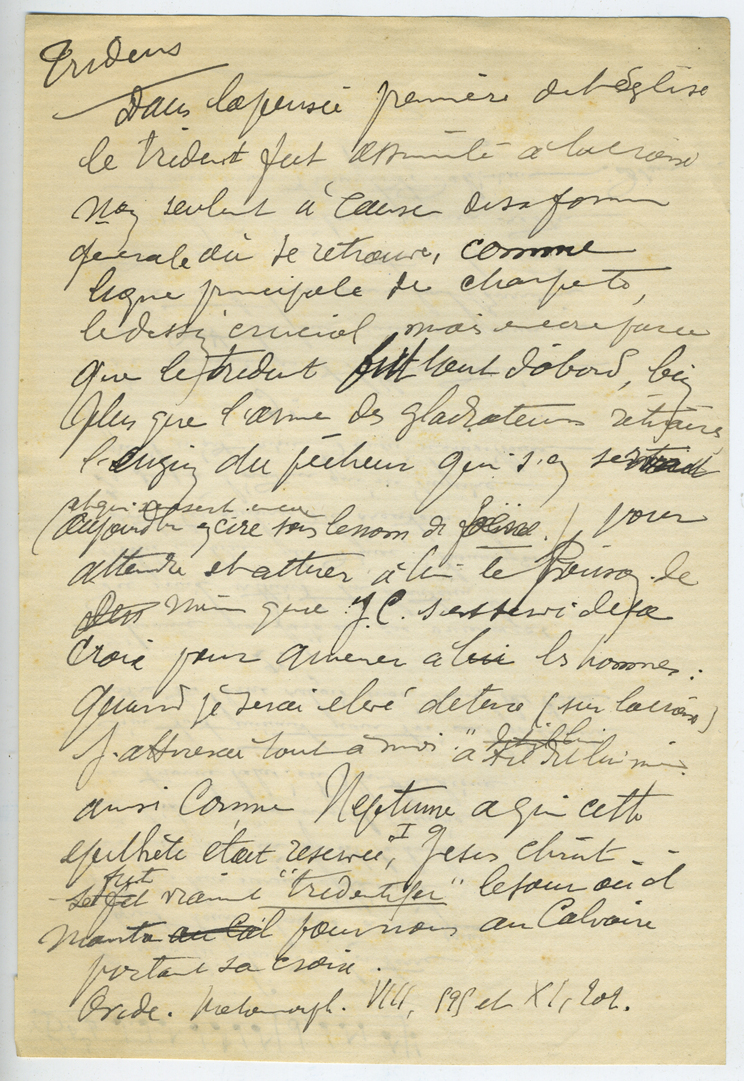 Tridens
Dans la pensée première de l'Église
le trident fut assimilé à la croix
non seulmt à cause de sa forme
générale où se retrouve, comme
ligne principale de charpente,
le dessin crucial mais encore parce
que le trident fut tout d'abord, bien
plus que l'arme des gladiateurs rétiaires
l'engin du pêcheur qui s'en
et qui s'en sert encore
(aujourd'hui sous le nom de ) pour
attendre et attirer à lui le Poisson. de
même que J.C. s'est servi de sa
croix pour amener à lui les hommes:
quand je serai elevé de terre (sur la croix)
j'attirerai tout à moi" a lui même
ainsi comme Neptune a qui cette
epithète était reservée, I Jesus Christ
fut vraimt "tridentifer" le jour où il
monta pour nous au Calvaire
portant sa croix.
Ovide. Metamorph. VIII, 595 et XI, 202.